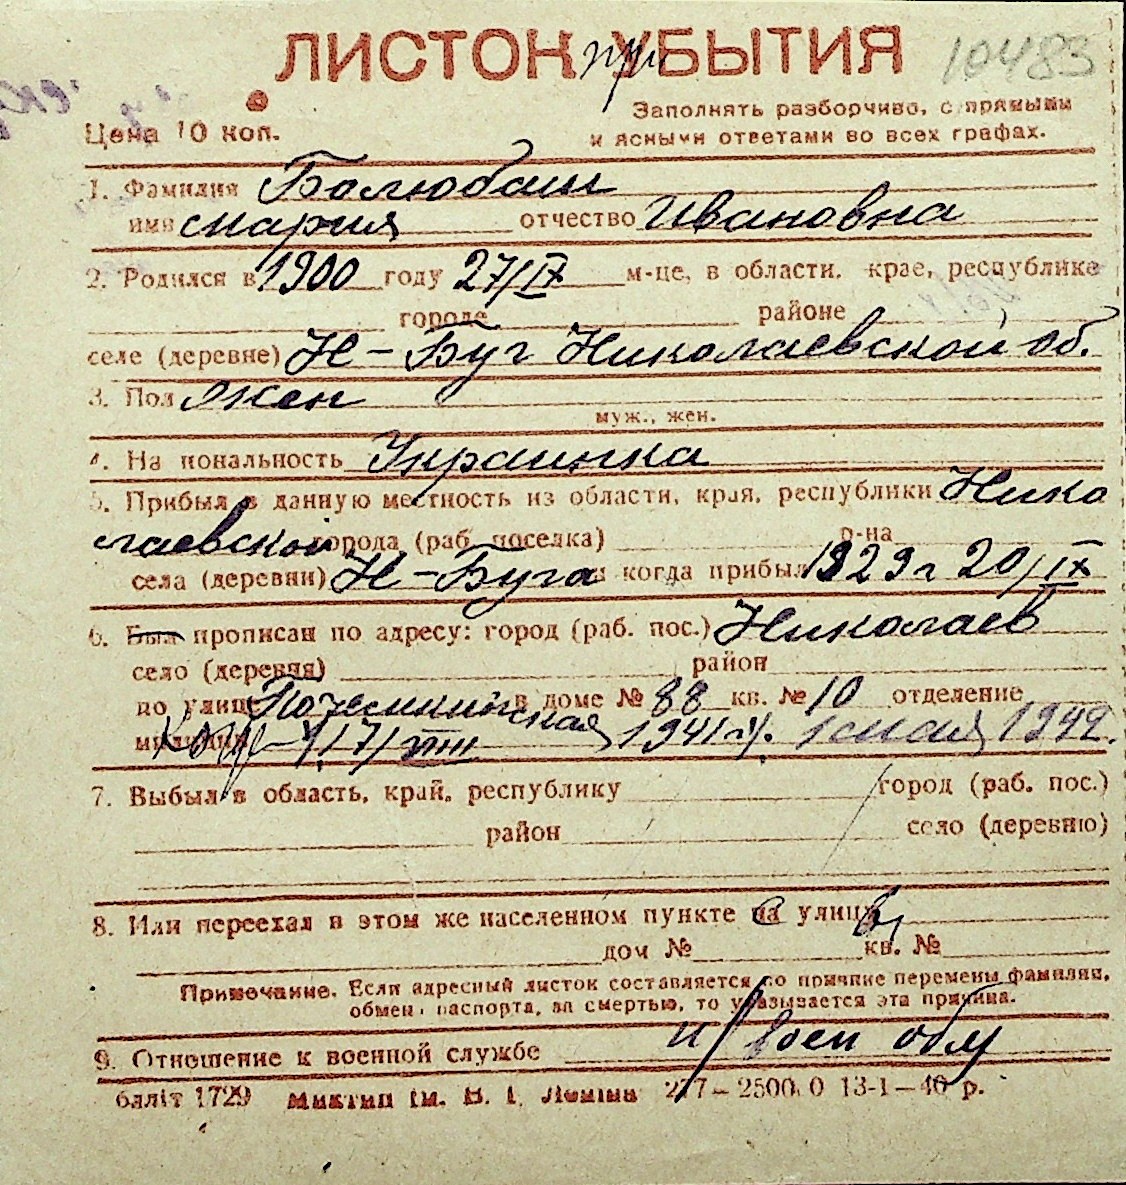 ЛИСТОК при УБЫТИЯ 10483
Цена 10 коп.
Заполнять разборчиво, с прямыми
и ясными ответами во всех графах.
1. Фамилия Балюбаш
имя Мария отчество Ивановна
2. Родился в 1900 году 27/IX м-це, в области, крае, республике
городе районе
селе (деревне) Н-Буг Николаевской об.
3. Пол жен
муж., жен.
4. Национальность Украинка
5. Прибыл в данную местность из области, края, республики Нико
лаевской города (раб. поселка) р-на
села (деревни) Н-Буга и когда прибыл 1929 г 20/IX
6. Был прописан по адресу: город (раб. пос.) Николаев
село (деревня) район
по улице Потемкинская в доме № 88 кв. № 10 отделение
милиции 17/VIII 1941 г. 1 мая 1942.
7. Выбыл в область, край, республику город (раб. пос.)
район село (деревню)
8. Или переехал в этом же населенном пункте на улицу
дом № кв. №
Примечание. Если адресный листок составляется по причине перемены фамилии,
обмена паспорта, за смертью, то указывается эта причина.
9. Отношение к военной службе н/воен обяз
бліт 1729 Миктип ім. В. І. Леніна 277—2500.0 13-1—40 р.